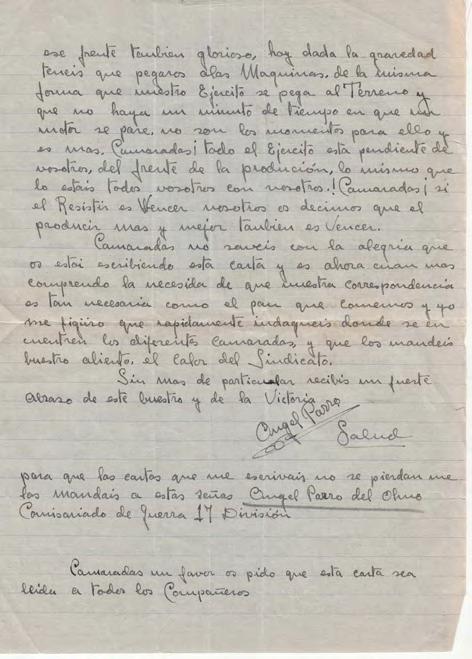 ese frente tanbien glorioso, hoy dada la gravedad
teneis que pegaros alas Maquinas, de la misma
forma que nuestro Ejercito se pega al Terreno y
que no haya un minuto de tiempo en que un
motor se pare, no son los momentos para ello y
es mas, Camaradas! todo el Ejercito esta pendiente de
vosotros, del frente de la producción, lo mismo que
lo estais todos vosotros con nosotros.! Camaradas! si
el Resistir es Vencer nosotros os decimos que el
producir mas y mejor tanbien es Vencer.
Camaradas no saveis con la alegria que
os estoi escribiendo esta carta y es ahora cuan mas
comprendo la necesida de que nuestra correspondencia
es tan necesaria como el pan que comemos y yo
me figüro que rapidamente indaqueis donde se en
cuentren los diferentes camaradas, y que los mandeis
buestro aliento, el calor del Sindicato.
Sin mas de particular recibis un fuerte
abrazo de este buestro y de la Victoria
Angel Parro
Salud
para que las cartas que me escrivais no se pierdan me
las mandais a estas señas Angel Parro del Olmo
Comisariado de Guerra 17 División
Camaradas un favor os pido que esta carta sea
leida a todos los Compañeros